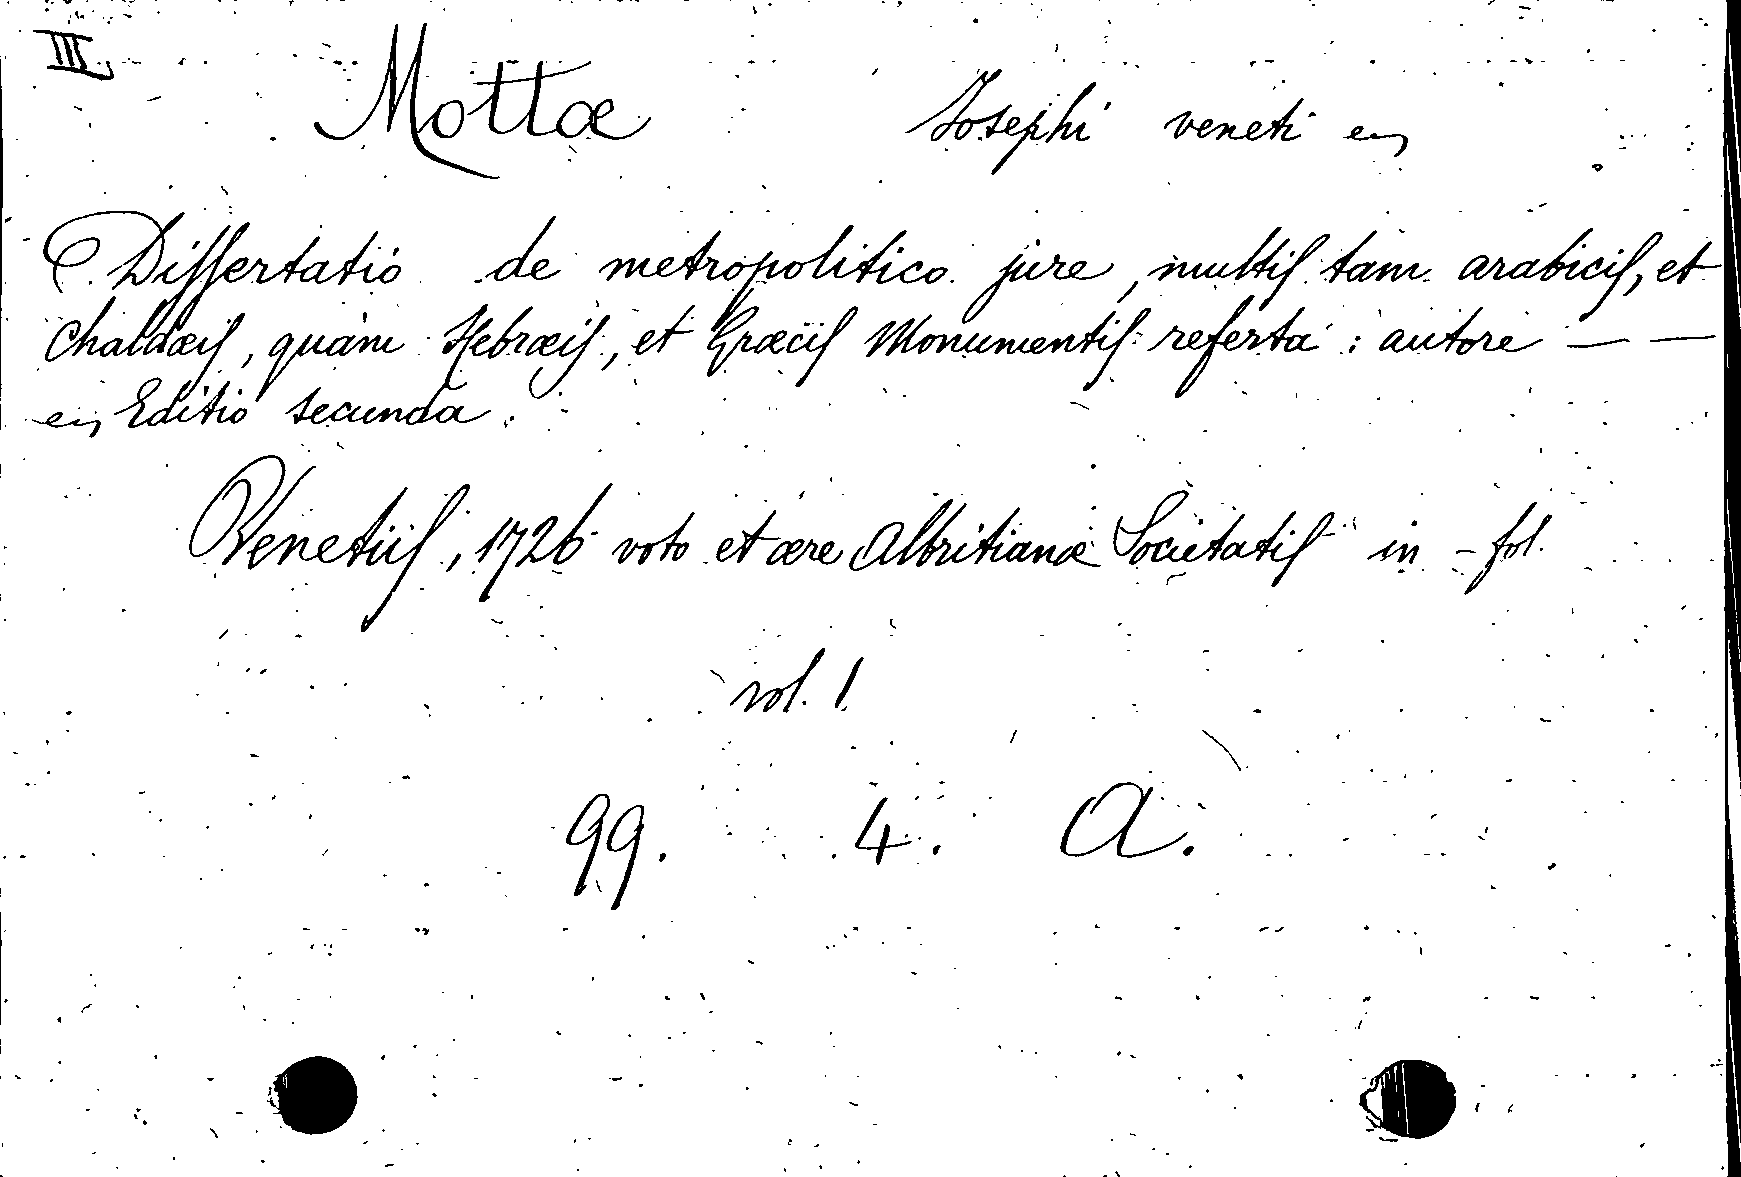 III.
Mottæ Josephi veneti en
Dissertatio de metropolitico jure, multis tam arabicis, et
Chaldæis, quàm Hebræis, et Græcis Monumentis referta: autore — —
en Editio secunda.
Venetiis, 1726 voto et ære Albritianæ Societatis in - fol.
vol. 1
99. 4. A.